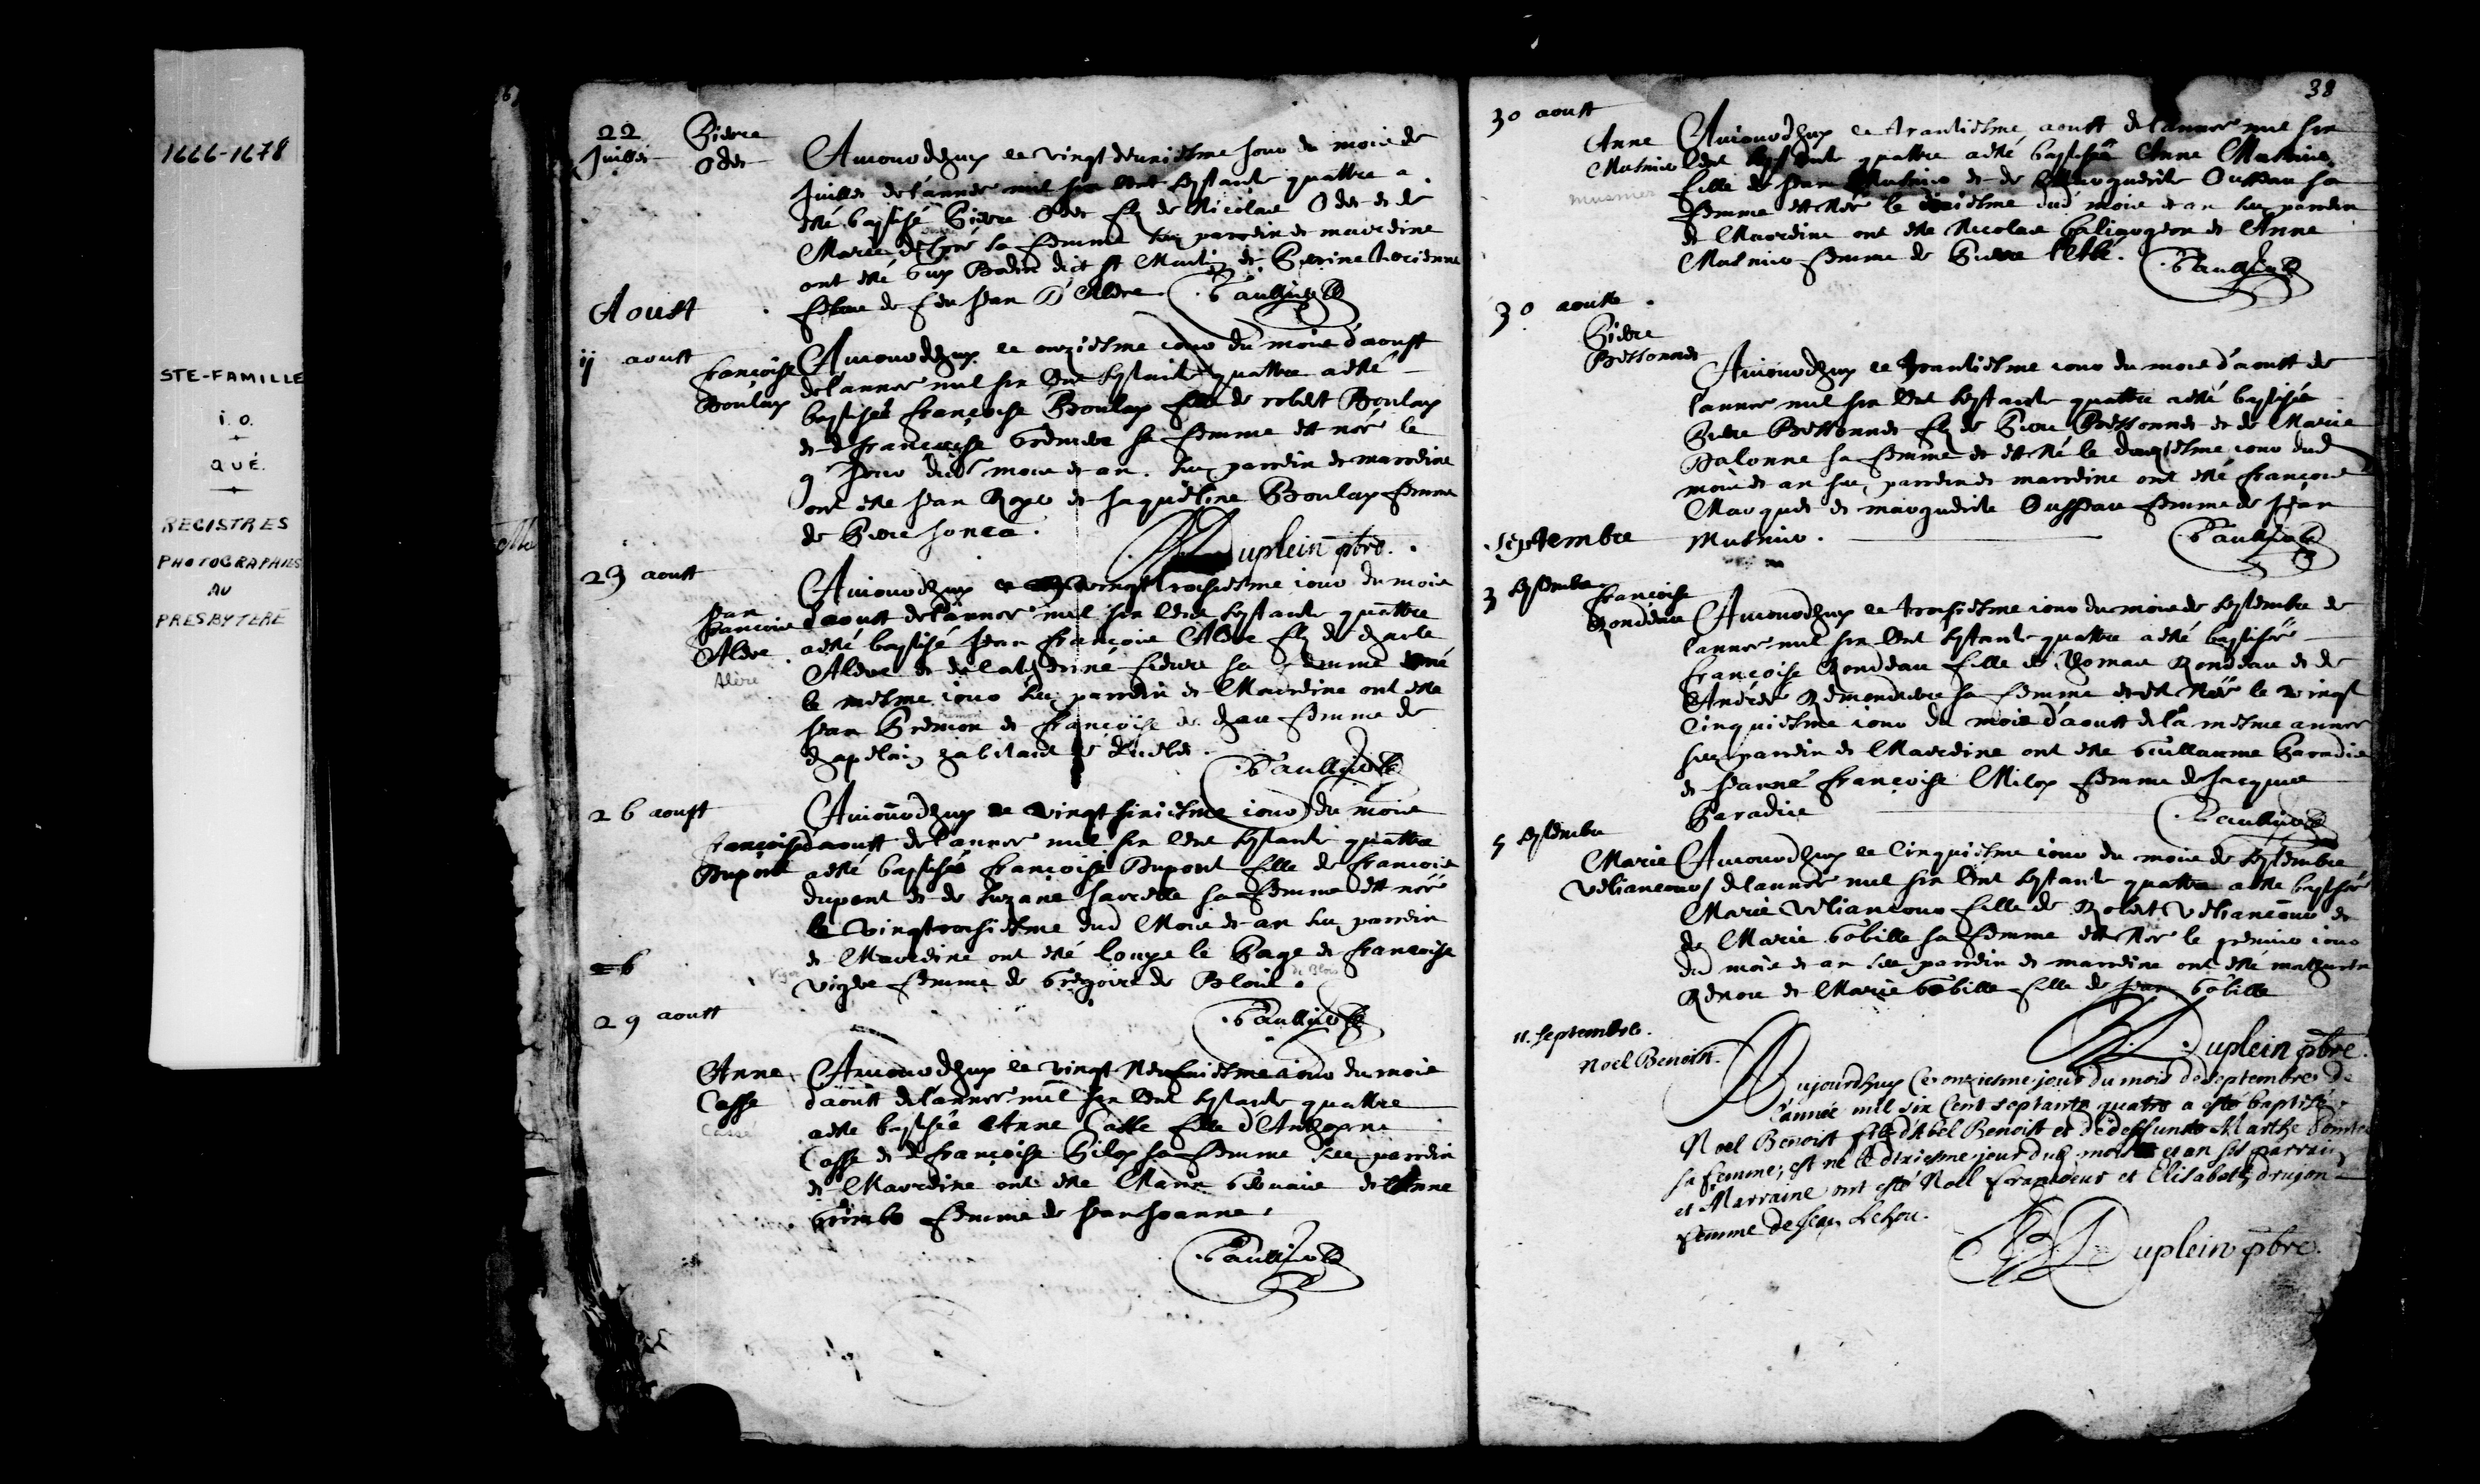 1666-1678
STE-FAMILLE
i. o.
QUÉ.
REGISTRES
PHOTOGRAPHIES
AU
PRESBYTERE
22
Juillet
Pierre
Odet
Aujourdhuy le vingt deuxiesme jour du mois de
Juillet de l'année mil six cent septante quattre a
esté baptisé Pierre Odet filz de Nicolas Odet et de
Marie sa femme ses parrein et marreine
ont esté Guy Bodin dict st Martin et Perine
femme de feu Jean
Aoust
ij aoust
françoise
Boulay
Aujourdhuy le onziesme jour du mois d'aoust
de l'année mil six cent septante quattre a esté
baptisée françoise Boulay fille de robert Boulay
et de françoise Grenier sa femme est née le
9e jour dud mois et an. ses parrein et marreine
ont esté Jean Royer et Jaqueline Boulay femme
de Pierre Jonca.
Duplein pbre.
23 aoust
Jean
françois
Alere
Alère
Aujourdhuy le vingt troisiesme jour du mois
d'aoust de l'année mil six cent septante quattre
a esté baptisé Jean françois Alere filz de charle
Alere et de catherine fievre sa femme né
le mesme jour ses parrein et Marreine ont esté
Jean Premon et françoise de chau femme de
chapelain habitant de
26 aoust
françoise
Dupont
Aujourdhuy le vingt sixiesme jour du mois
d'aoust de l'année mil six cent septante quattre
a esté baptisée françoise Dupont fille de françois
dupont et de Suzane Jarelle sa femme est née
le vingt troisiesme dud Mois et an ses parrein
et Marreine ont esté Louys le Page et françoise
vigere femme de Gregoire de Blois.
Viger
de Blois
29 aoust
Anne
Casse
Cassé
Aujourdhuy le vingt Neufviesme jour du mois
d'aoust de l'année mil six cent septante quattre
a esté baptisée Anne Casse fille d'Anthoyne
Casse et de françoise Piloy sa femme ses parrein
et Marreine ont esté Marin Gervais et Anne
Grimbo femme de Jean Joanne.
38
30 aoust
Anne
Musnier
musnier
Aujourdhuy le trantiesme aoust de l'année mil six
cent septante quattre a esté baptisée Anne Musnier
fille de Jean Musnier et de Marguerite Ousseau sa
femme est née le dud mois et an ses parrein
et Marreine ont esté Nicolas et Anne
Musnier femme de Pierre l'Abé.
30 aoust
Pierre
Bessonnet
Aujourdhuy le trantiesme jour du mois d'aoust de
l'année mil six cent septante quattre a esté baptisée
Pierre Bessonnet filz de Pierre Bessonnet et de Marie
Dalonne sa femme et est né le jour dud
mois et an ses parrein et marreine ont esté françois
Marquet et marguerite Ousseau femme de Jean
Musnier.
Septembre
3 septembre
françoise
Rondeau
Aujourdhuy le troisiesme jour du mois de septembre de
l'année mil six cent septante quattre a esté baptisée
françoise Rondeau fille de Thomas Rondeau et de
Andrée Remondiere sa femme et est née le vingt
cinquiesme jour du mois d'aoust de la mesme année
ses parrein et Marreine ont esté Guillaume Paradis
et Jeanne françoise Miloy femme de Jacques
Paradis
5 septembre
Marie
Veliancour
Aujourdhuy le cinquiesme jour du mois de septembre
de l'année mil six cent septante quattre a esté baptisée
Marie Veliancour fille de Robert Veliancour et
de Marie Gobille sa femme est née le premier jour
du mois et an ses parrein et marreine ont esté mathurin
Renou et Marie Gobille fille de Jean Gobille
Duplein pbre.
11. septembre.
Noel Benoist.
Aujourdhuy Ce onziesme jour du mois de septembre de
l'année mil six Cent septante quatre a esté baptisé
Noel Benoist filz d'Abel Benoist et de deffuncte Marthe
sa femme, est né le dixiesme jour dud mois et an ses parrain
et Marraine ont esté Noel et Elisabeth drugon
femme de Jean Lehou.
Duplein pbre.